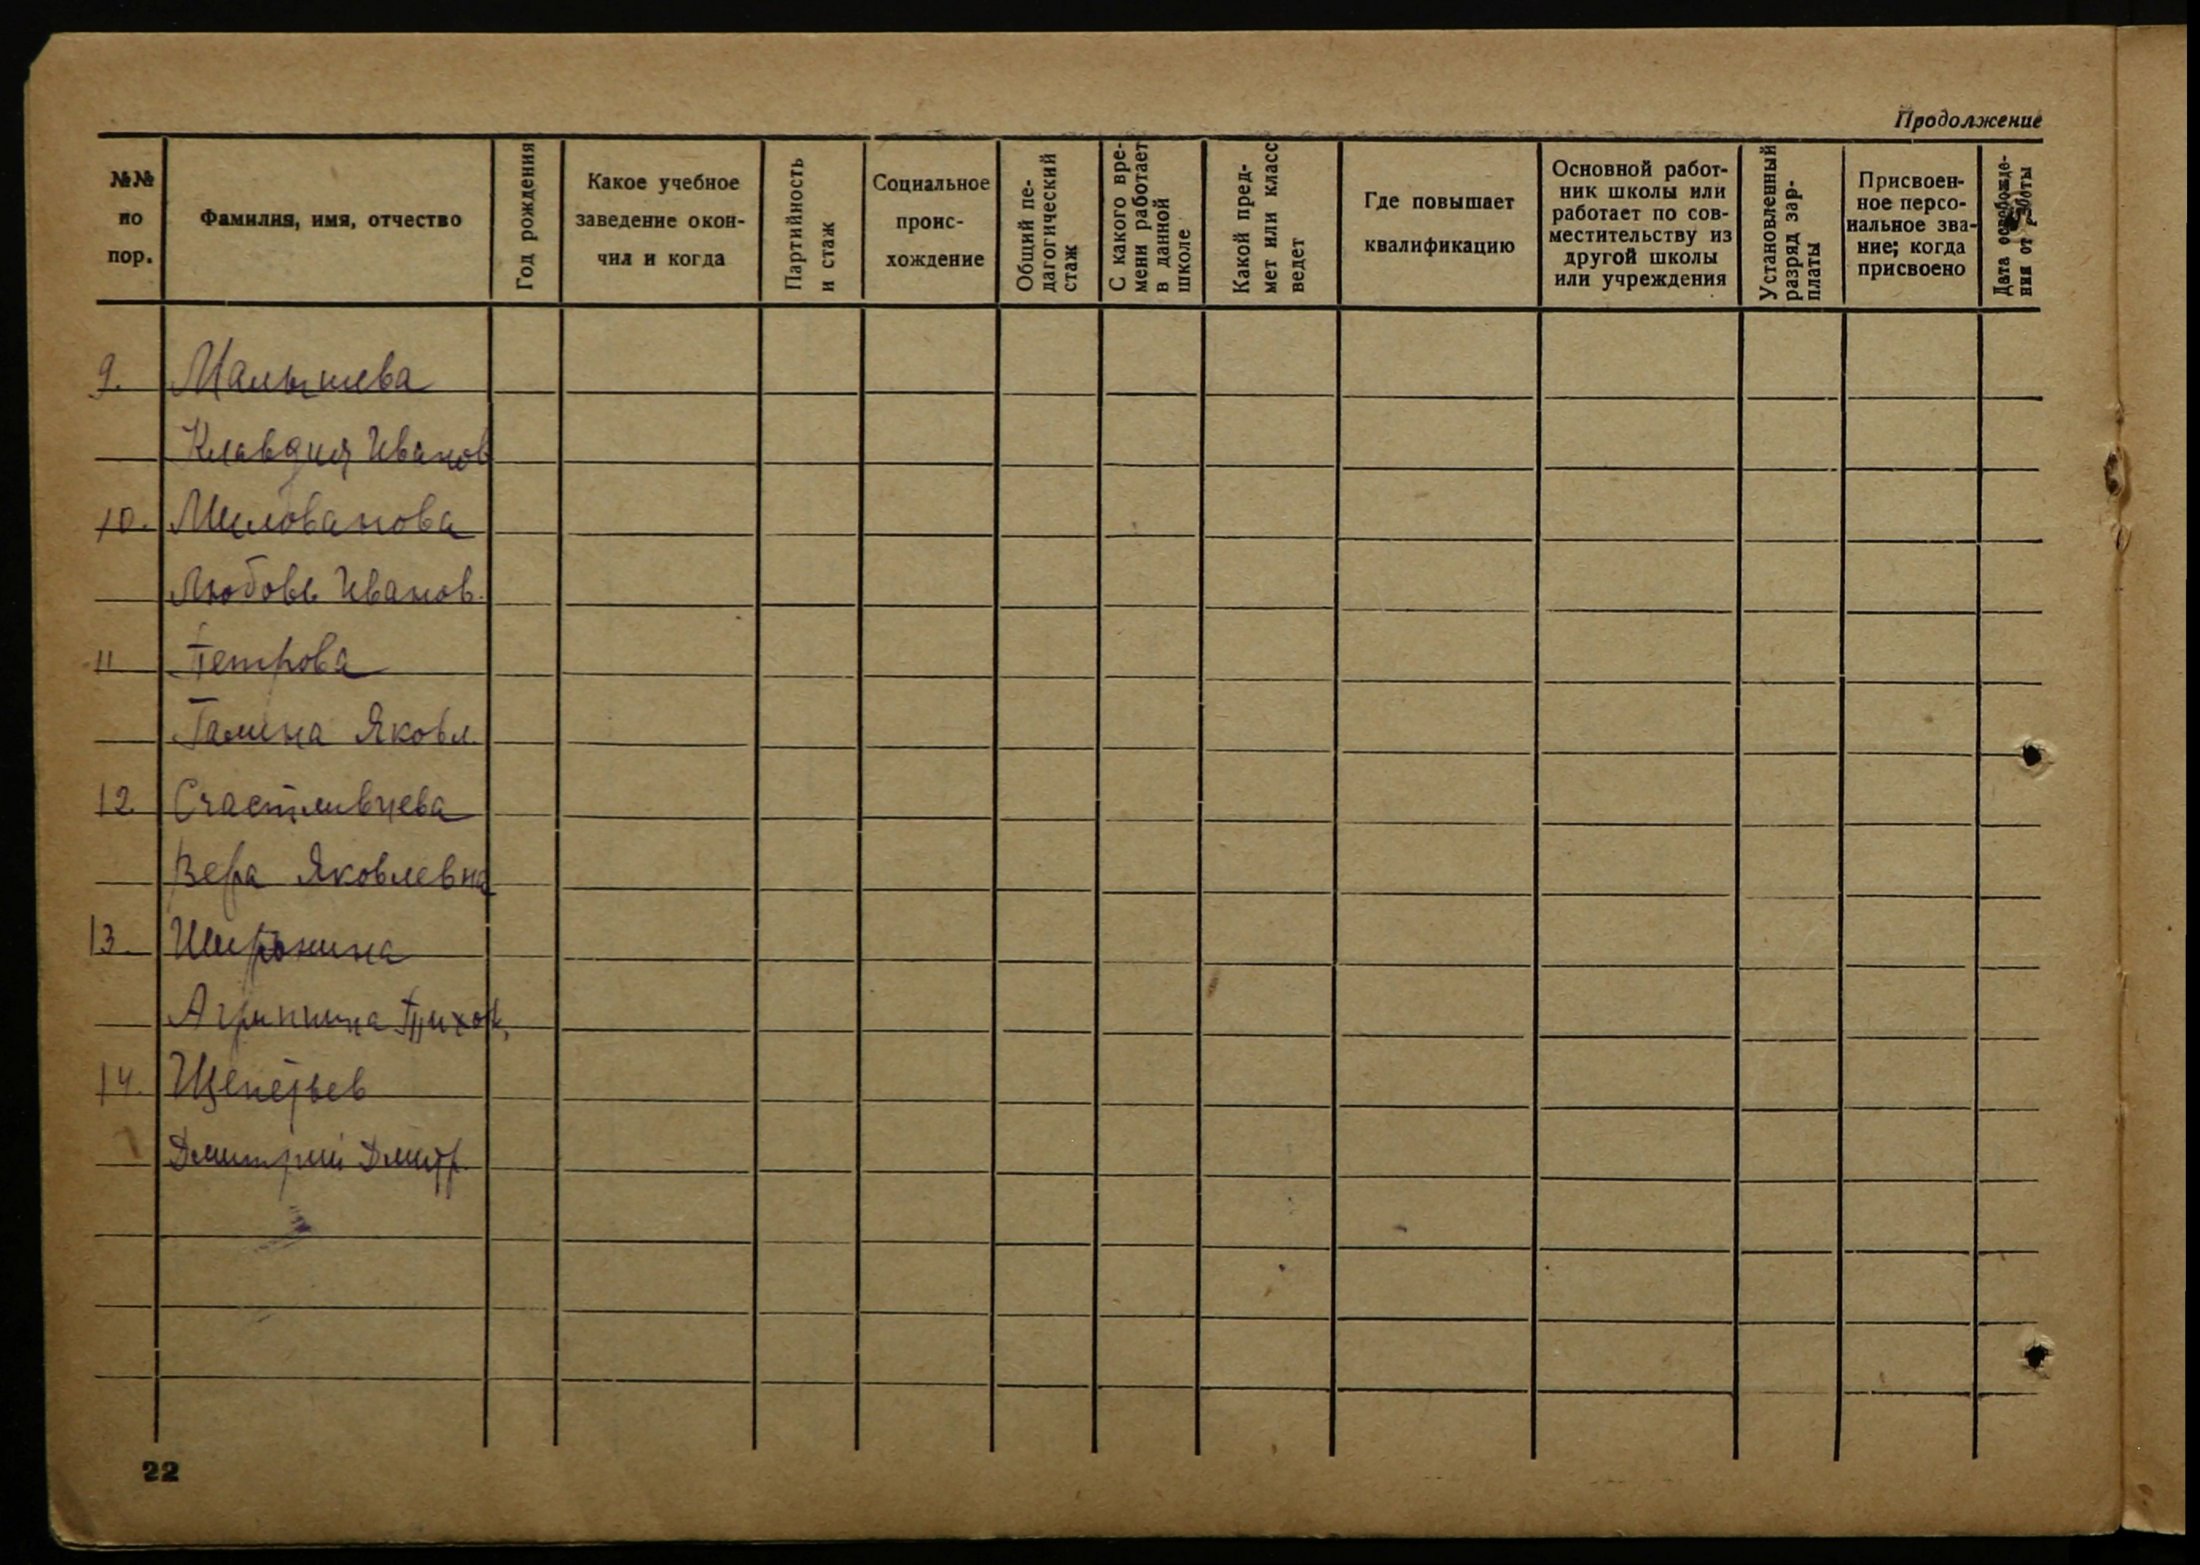 Продолжение
№№
по
пор.
Фамилия, имя, отчество
Год рождения
Какое учебное
заведение окон-
чил и когда
Партийность
и стаж
Социальное
проис-
хождение
Общий пе-
дагогический
стаж
С какого вре-
мени работает
в данной
школе
Какой пред-
мет или класс
ведет
Где повышает
квалификацию
Основной работ-
ник школы или
работает по сов-
местительству из
другой школы
или учреждения
Установленный
разряд зар-
платы
Присвоен-
ное персо-
нальное зва-
ние; когда
присвоено
Дата освобожде-
ния от работы
9. Малышева
Клавдия Иванов
10. Милованова
Любовь Иванов.
11 Петрова
Галина Яковл.
12. Счастливцева
Вера Яковлевна
13.Широнина
Агрипина Тихон.
14. Щепетьев
Дмитрий Дмитр.
22